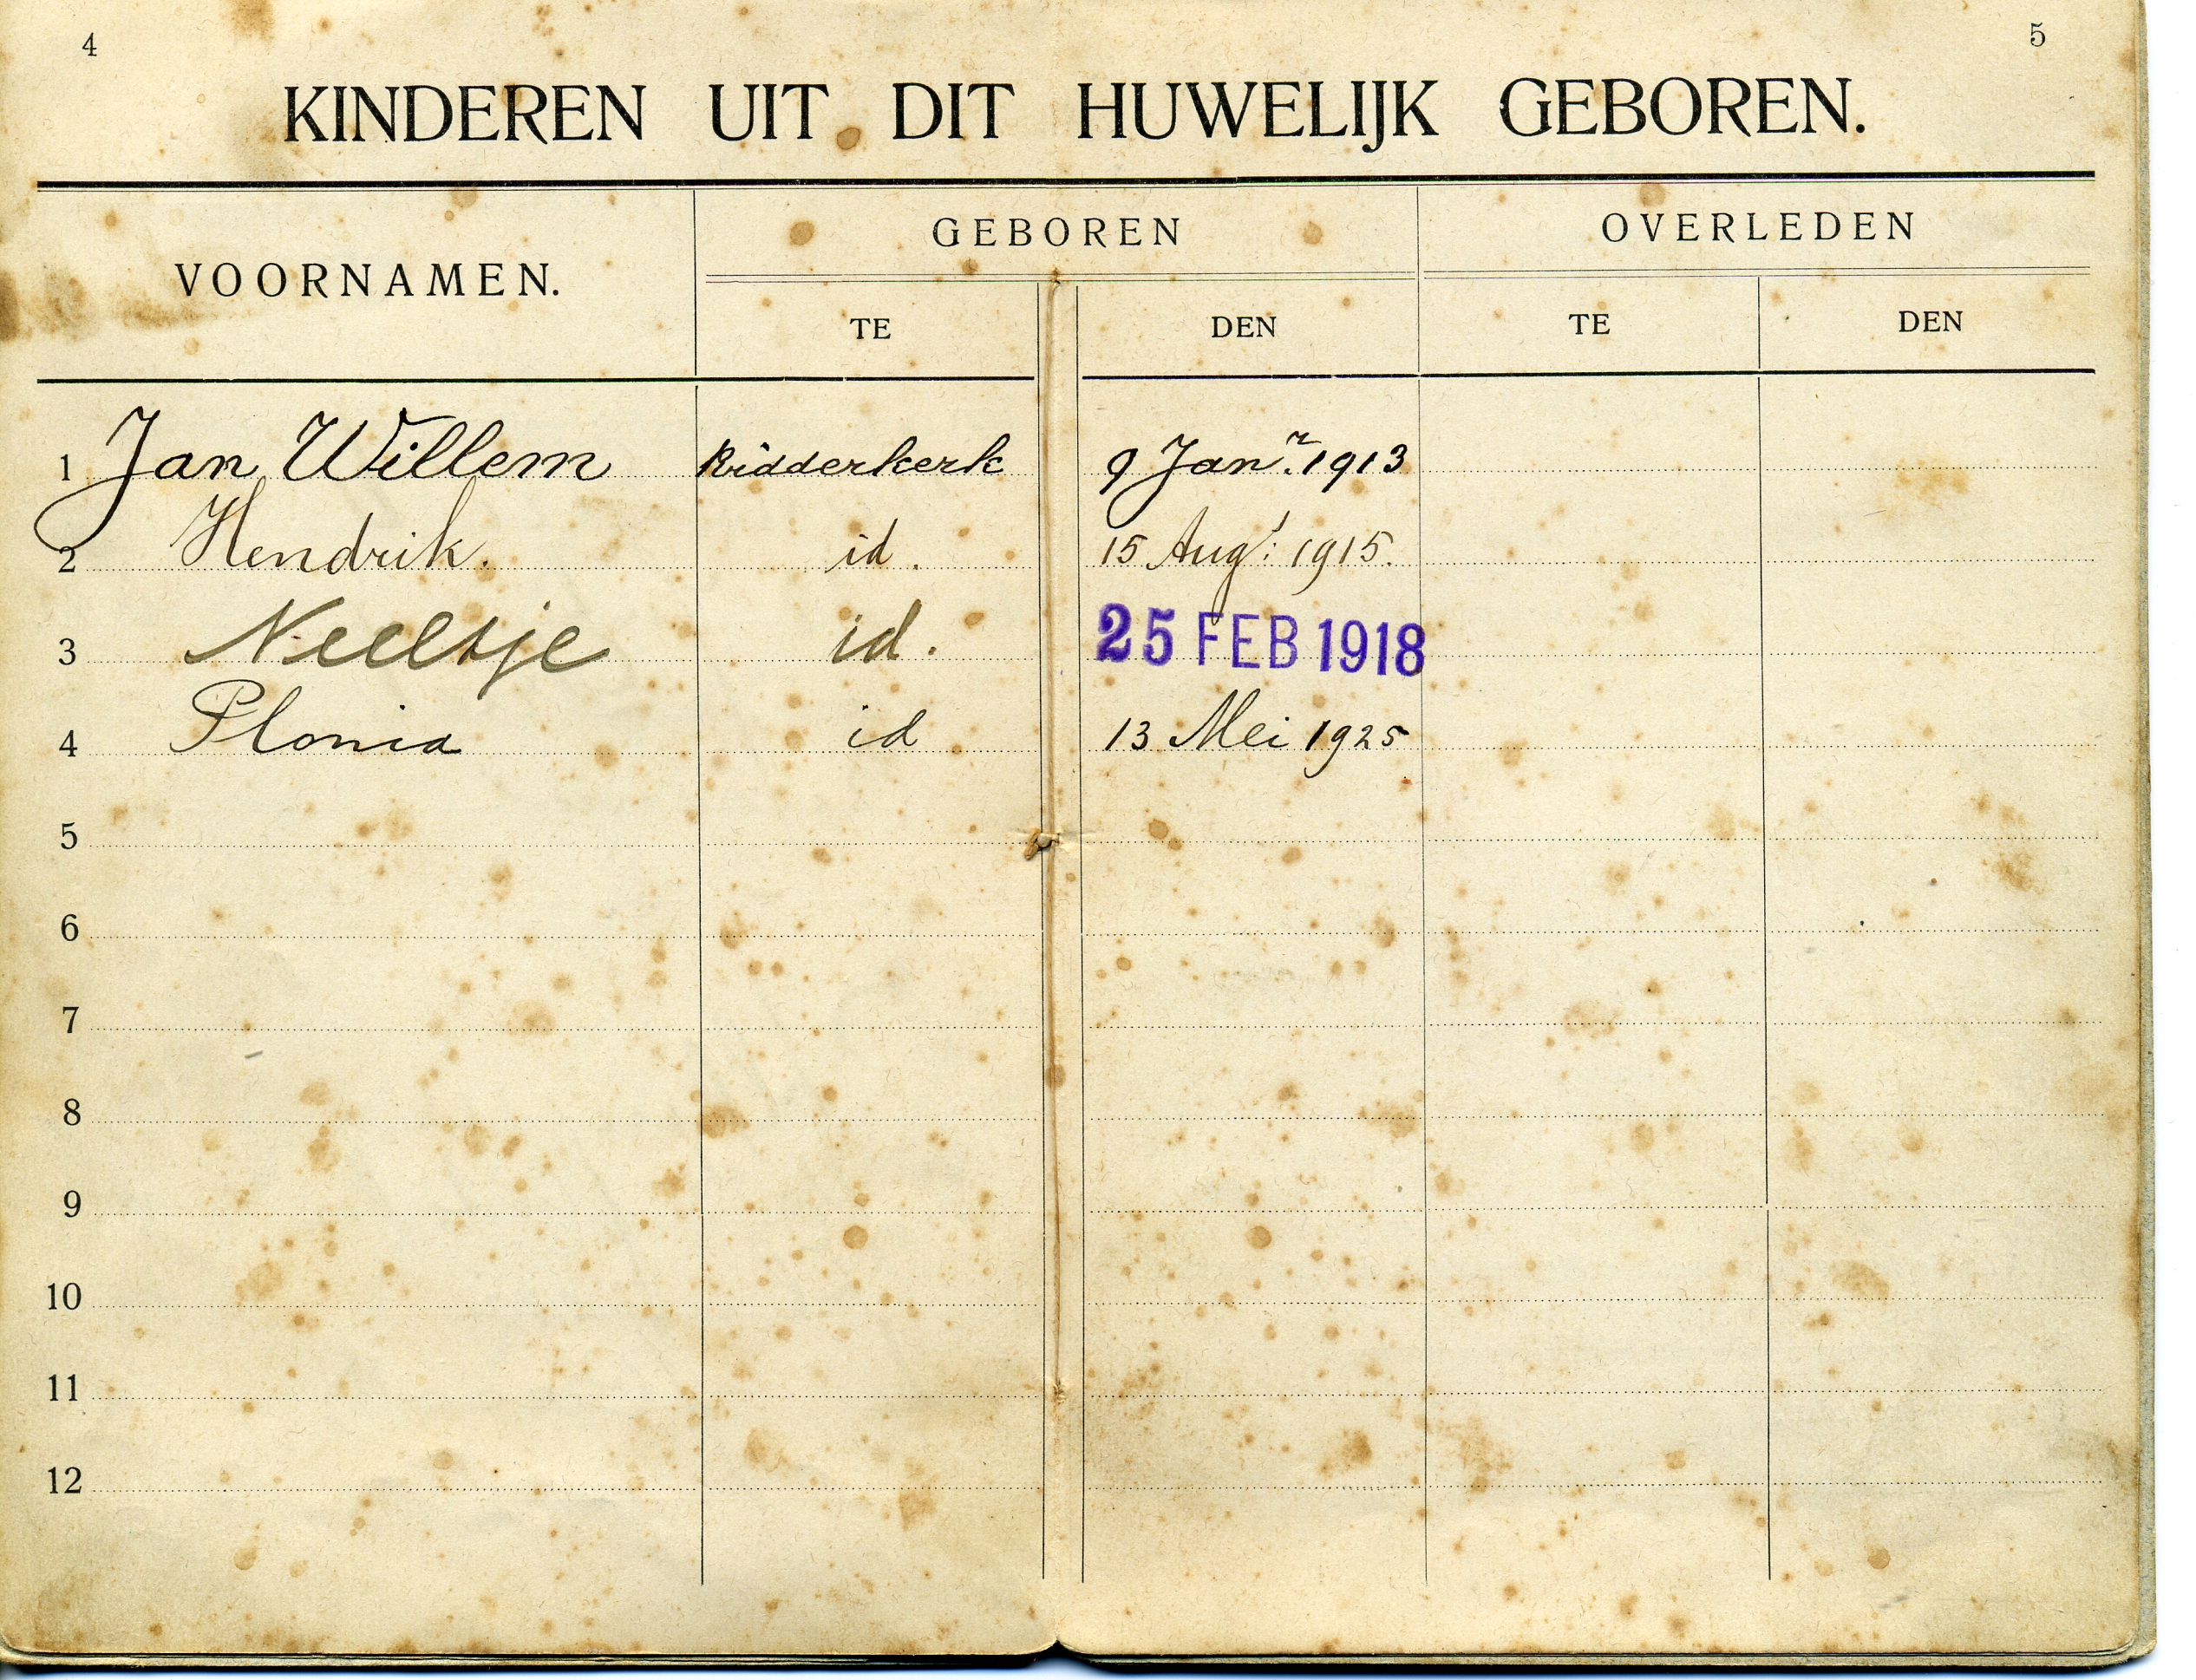 4 5
KINDEREN UIT DIT HUWELIJK GEBOREN.
VOORNAMEN. GEBOREN OVERLEDEN
TE DEN TE DEN
1 Jan Willem Ridderkerk 9 Janr. 1913
2 Hendrik. id. 15 Augt: 1915.
3 Neeltje id. 25 FEB 1918
4 Plonia id 13 Mei 1925
5
6
7
8
9
10
11
12